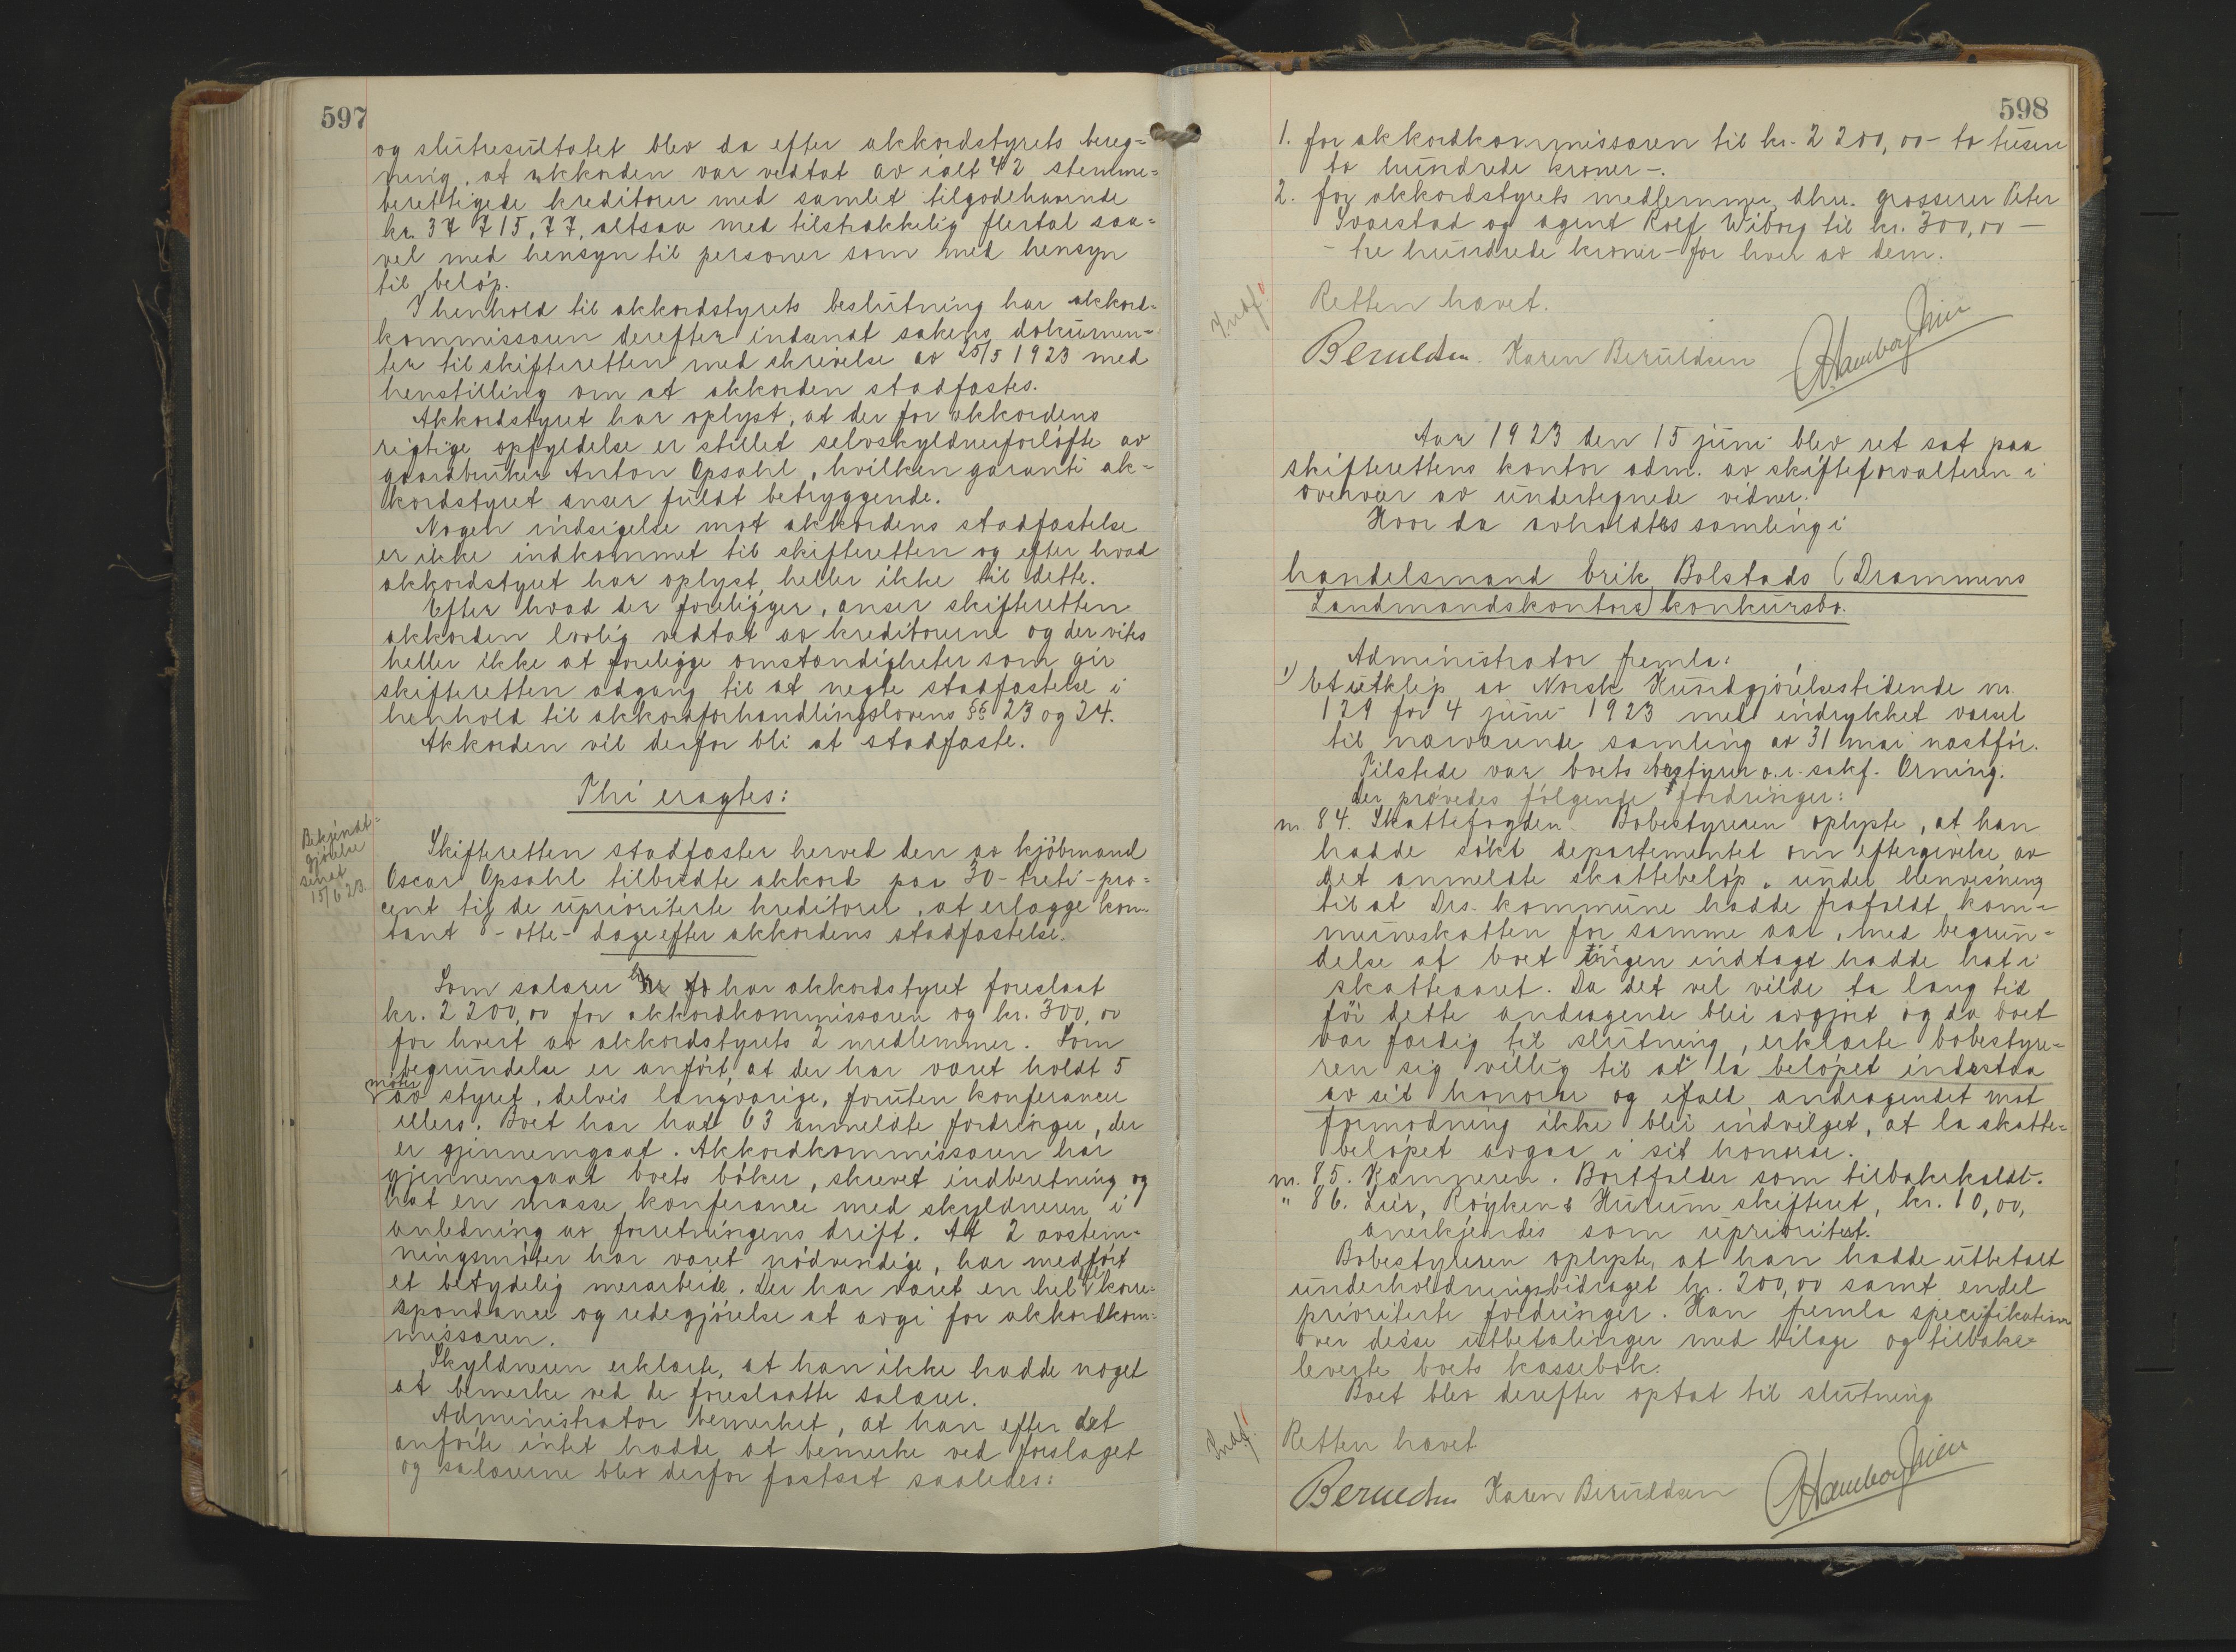 597
og slutresultatet blev da efter akkordstyrets bereg=
ning, at akkorden var vedtat av ialt 42 stemme=
berettigede kreditorer med samlet tilgodehavende
kr. 37 715,77, altsaa med tilstrækkelig flertal saa=
vel med hensyn til personer som med hensyn
til beløp.
I henhold til akkordstyrets beslutning har akkord=
kommissæren derefter indsendt sakens dokumen=
ter til skifteretten med skrivelse av 25/5 1923 med
henstilling om at akkorden stadfæstes.
Akkordstyret har oplyst, at der for akkordens
rigtige opfyldelse er stillet selvskyldnerforløfte av
gaardbruker Anton Opsahl, hvilken garanti ak=
kordstyret anser fuldt betryggende.
Nogen indsigelse mot akkordens stadfæstelse
er ikke indkommet til skifteretten og efter hvad
akkordstyret har oplyst, heller ikke til dette.
Efter hvad der foreligger, anser skifteretten
akkorden lovlig vedtat av kreditorerne og der vites
heller ikke at foreligge omstændigheter som gir
skifteretten adgang til at negte stadfæstelse i
henhold til akkordforhandlingslovens §§ 23 og 24.
Akkorden vil derfor bli at stadfæste.
Thi eragtes:
Bekjendt=
gjørelse
sendt
15/6 23.
Skifteretten stadfæster herved den av kjøbmand
Oscar Opsahl tilbudte akkord paa 30 - treti - pro=
cent til de uprioriterte kreditorer, at erlægge kon=
tant 8 - otte - dage efter akkordens stadfæstelse.
Som salærer har akkordstyret foreslaat
kr. 2 200,00 for akkordkommissæren og kr. 300,00
for hvert av akkordstyrets 2 medlemmer. Som
begrundelse er anført, at der har været holdt 5
møter
av styret, delvis langvarige, foruten konferancer
ellers. Boet har hat 63 anmeldte fordringer, der
er gjennemgaat. Akkordkommissæren har
gjennemgaat boets bøker, skrevet indberetning og
hat en masse konferance med skyldneren i
anledning av forretningens drift. At 2 avstem=
ningsmøter har været nødvendige, har medført
et betydelig merarbeide. Der har været en hel kore=
spondance og redegjørelse at avgi for akkordkom=
missæren.
Skyldneren erklærte, at han ikke hadde noget
at bemerke ved de foreslaatte salærer.
Administrator bemerket, at han efter det
anførte intet hadde at bemerke ved forslaget
og salærerne blev derfor fastsat saaledes:
598
1. for akkordkommissæren til kr. 2 200,00 - to tusen
to hundrede kroner -.
2. for akkordstyrets medlemmer, dhrr. grosserer Peter
Svarstad og agent Rolf Wiborg til kr. 300,00 -
- tre hundrede kroner - for hver av dem.
Indf!
Retten hævet.
Beruldsen. Karen Beruldsen
Aar 1923 den 15 juni blev ret sat paa
skifterettens kontor adm. av skifteforvalteren i
overvær av undertegnede vidner.
Hvor da avholdtes samling i
handelsmand Erik Bolstads (Drammens
Landmandskontors) konkursbo.
Administrator fremla:
1) Et utklip av Norsk Kundgjørelsestidende nr.
129 for 4 juni 1923 med indrykket varsel
til nærværende samling av 31 mai næstfør.
Tilstede var boets bestyrer o.r.sakf. Orning.
Der prøvedes følgende fordringer:
nr. 84. Skattefogden. Bobestyreren oplyste, at han
hadde søkt departementet om eftergivelse av
det anmeldte skattebeløp, under henvisning
til at Drs. kommune hadde frafaldt kom=
muneskatten for samme aar, med begrun=
delse at boet ingen indtægt hadde hat i
skatteaaret. Da det vel vilde ta lang tid
før dette andragende blei avgjort og da boet
var færdig til slutning, erklærte bobestyre=
ren sig villig til at la beløpet indestaa
av sit honorar og ifald andragendet mot
formodning ikke blei indvilget, at la skatte=
beløpet avgaa i sit honorar.
nr. 85. Kæmneren. Bortfalder som tilbakekaldt.
" 86. Lier, Røyken & Hurum skifteret, kr. 10,00,
anerkjendes som uprioritert.
Bobestyreren oplyste, at han hadde utbetalt
underholdningsbidraget kr. 200,00 samt endel
prioriterte fordringer. Han fremla specifikation
over disse utbetalinger med bilage og tilbake=
leverte boets kassebok.
Boet blev derefter optat til slutning
Indf!
Retten hævet
Beruldsen Karen Beruldsen